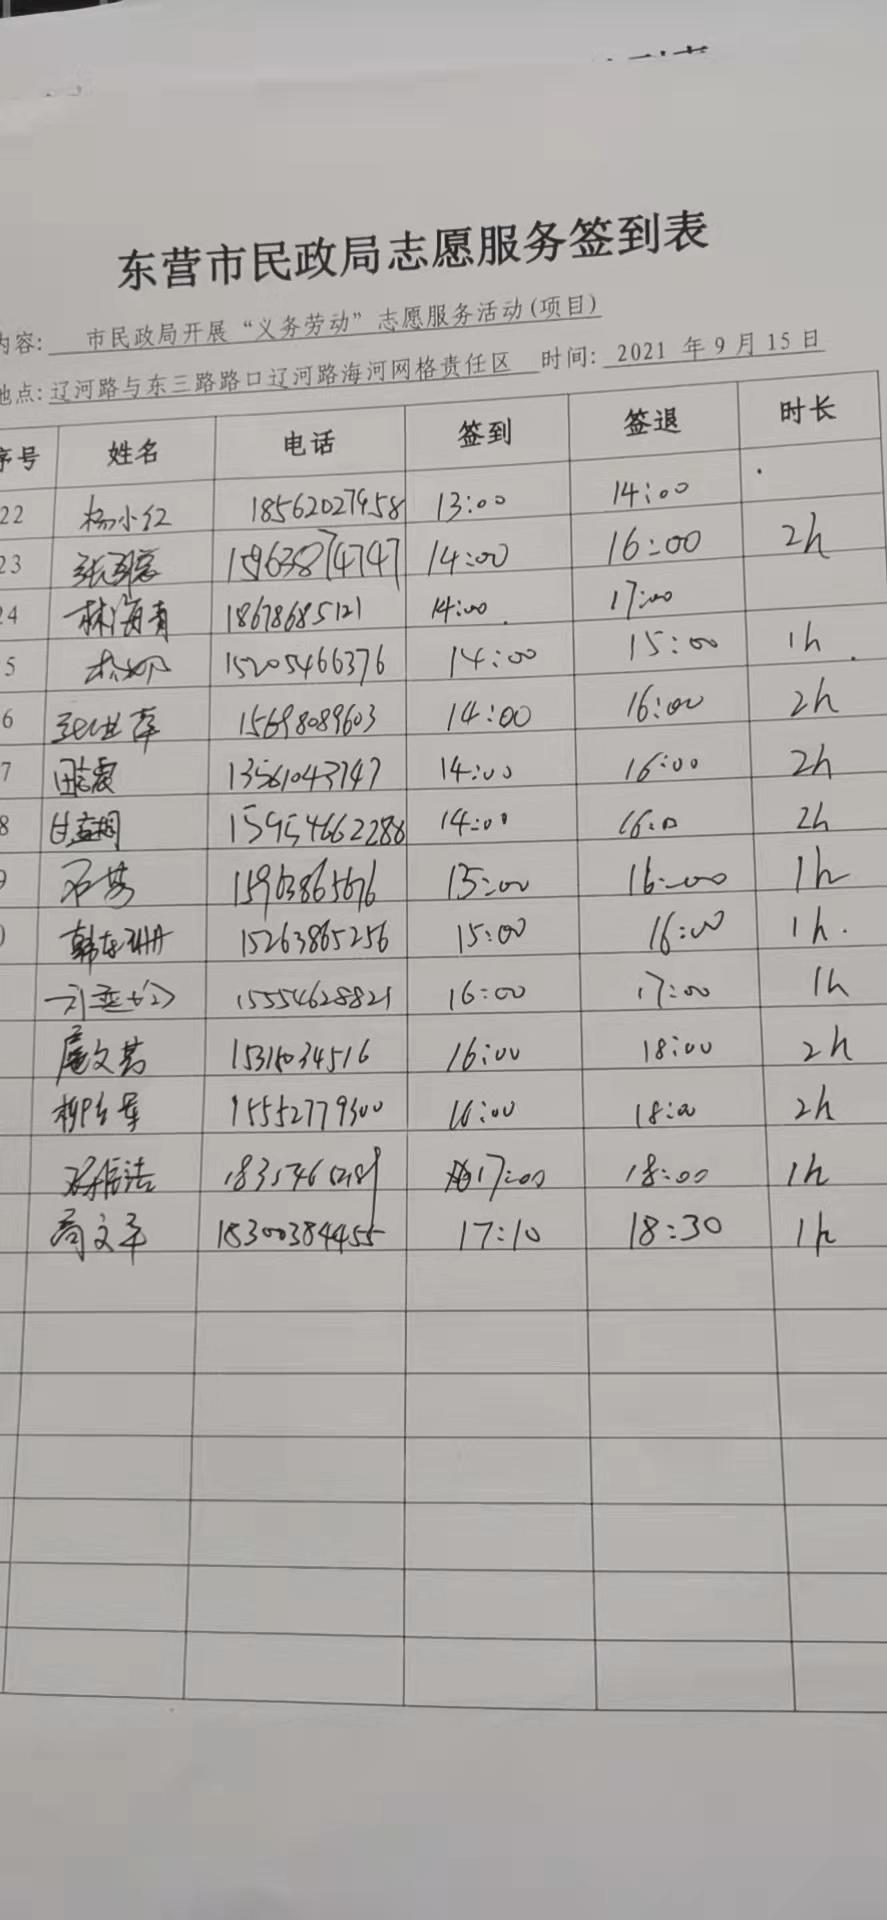 东营市民政局志愿服务签到表
内容: 市民政局开展“义务劳动”志愿服务活动(项目)
地点: 辽河路与东三路路口辽河路海河网格责任区 时间: 2021 年 9 月 15 日
序号 姓名 电话 签到 签退 时长
22 杨小红 18562027958 13:00 14:00
23 15963874747 14:00 16:00 2h
24 林海青 18678685121 14:00 17:00
5 15205466376 14:00 15:00 1h
6 15698089603 14:00 16:00 2h
7 田志霞 13561043747 14:00 16:00 2h
8 甘孟桐 15954662288 14:00 16:00 2h
9 石芳 15963865676 15:00 16:00 1h
0 韩东珊 15263865256 15:00 16:00 1h.
15554628821 16:00 17:00 1h
庞文茜 16:00 18:00 2h
15552779300 16:00 18:00 2h
17:00 18:00 1h
高文平 18300384455 17:10 18:30 1h